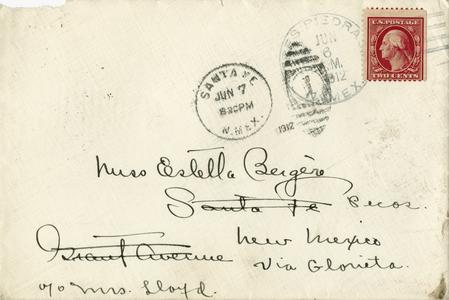 U.S. POSTAGE
TWO CENTS
ES PIEDRAS
JUN
6
M.
1912
N. MEX.
1
SANTA FE
JUN 7
8:30PM
N. MEX.
1912
Miss Estella Bergère
Santa Fe Pecos.
Grant Avenue New Mexico
Via Glorieta.
c/o Mrs. Lloyd.